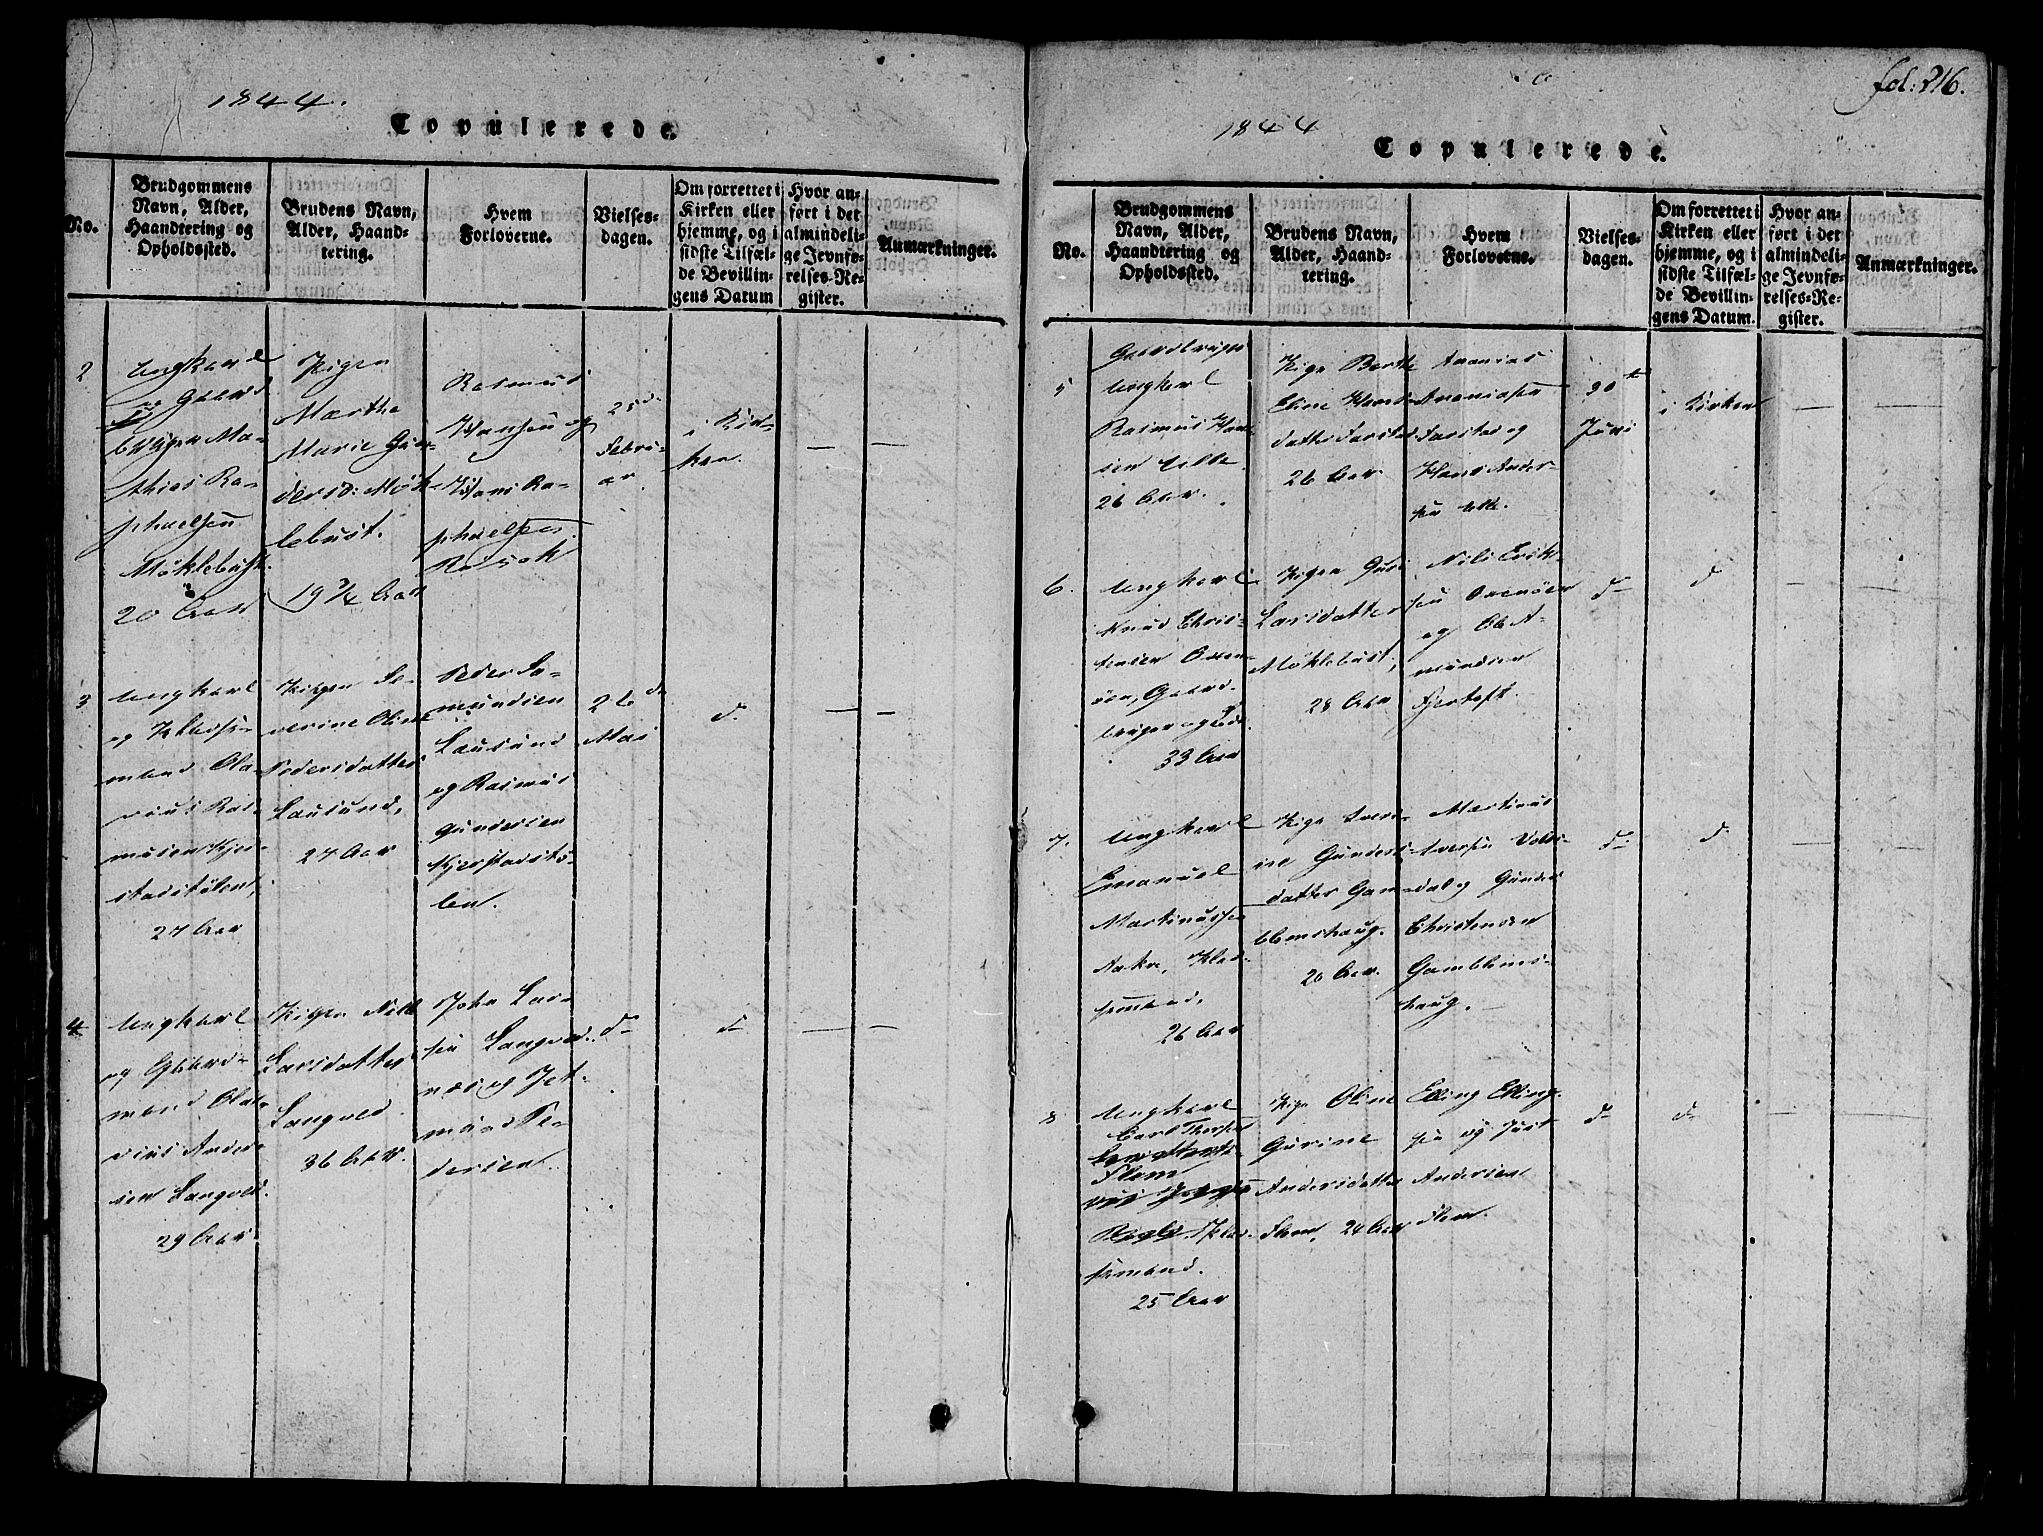 1844.
Copulerede.
No.
Brudgommens
Navn, Alder,
Haandtering og
Opholdssted.
Brudens Navn,
Alder, Haand-
tering.
Hvem
Forloverne.
Vielses-
dagen.
Om forrettet i
Kirken eller
hjemme, og i
sidste Tilfæl-
de Bevillin-
gens Datum
Hvor an-
ført i det
almindeli-
ge Jevnfø-
relses-Re-
gister.
Anmærkninger.
2
Ungkarl
og Gaard
bruger Ma-
thias Ra-
phaelsen
Møklebust.
20 Aar
Pigen
Marthe
Marie Gun-
dersd: Møk-
lebust.
19 3/4 Aar
Rasmus
Hansen og
Hans Ra-
phaelsen
25de
Febru-
ar
i Kir-
ken.
3
Ungkarl
og Pladsse-
mand Ola-
rius Ras-
musen Kjer-
stadstølen,
27 Aar
Pigen Se-
verine Oline
Pedersdatter
Lausund,
27 Aar
Peder Sa-
mundsen
Lausund
og Rasmus
Gundersen
Kjerstadstø-
len.
26de
Mai
d.
4
Ungkarl
og Gaard-
mand Ola-
rius Ander-
sen Langved.
29 Aar
Pigen
Larsdatter
Langved
36 Aar.
John Lar-
sen Langved.
og Jet-
mund Pe-
dersen.
d-
d-
fol: 216.
1844
Copulerede.
No.
Brudgommens
Navn, Alder,
Haandtering og
Opholdssted.
Brudens Navn,
Alder, Haand-
tering.
Hvem
Forloverne.
Vielses-
dagen.
Om forrettet i
Kirken eller
hjemme, og i
sidste Tilfæl-
de Bevillin-
gens Datum.
Hvor an-
ført i det
almindeli-
ge Jevnfø-
relses-Re-
gister.
Anmærkninger.
5
Gaardbruger
Ungkarl
Rasmus Han-
sen Ulle
26 Aar.
Pige Berthe
Eline Hans-
datter Farstad
26 Aar
Ananias
Ananiasen
Farstad og
Hans Ander-
sen Ulle.
30te
Juni
i Kirken
6.
Ungkarl
Knud Chris-
tensen Oxen-
øen, Gaard-
bruger
33 Aar
Pigen Guri
Larsdatter
Møklebust,
28 Aar
Nils Erik-
sen Oxenøen
og Ole A-
mundsen
Fjertoft.
d-
d
7.
Ungkarl
Emanuel
Martinussen
Aakre, Plad-
semand.
26 Aar
Pige Iveri-
ne Gunders-
datter Gam-
blemshaug.
20 Aar.
Martinus
Iversen Vols-
dal og Gunder
Christensen
Gamblems-
haug.
d-
d.
8
Ungkarl
Carl Thorsen
Flem
Plad-
semand.
25 Aar
Pige Oline
Gurine
Andersdatter
Flem, 24 Aar
Elling Elling-
sen og Just
Andersen
Flem.
d-
d-